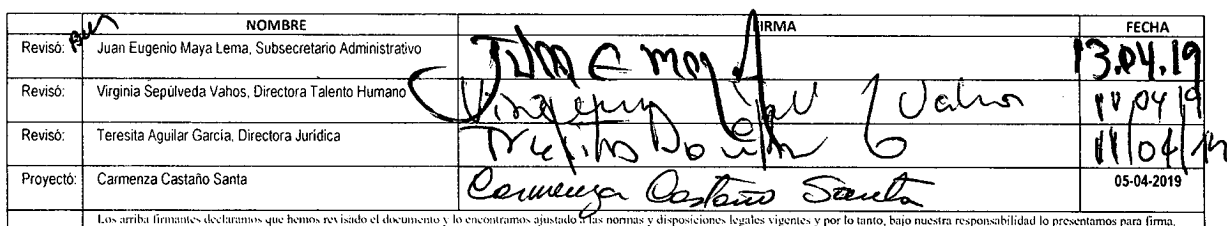 NOMBRE FIRMA FECHA
Revisó: Juan Eugenio Maya Lema, Subsecretario Administrativo Juan E Maya 13.04.19
Revisó: Virginia Sepúlveda Vahos, Directora Talento Humano Vahos 11 04 19
Revisó: Teresita Aguilar García, Directora Jurídica 11/04/19
Proyectó: Carmenza Castaño Santa Carmenza Castaño Santa 05-04-2019
Los arriba firmantes declaramos que hemos revisado el documento y lo encontramos ajustado a las normas y disposiciones legales vigentes y por lo tanto, bajo nuestra responsabilidad lo presentamos para firma.